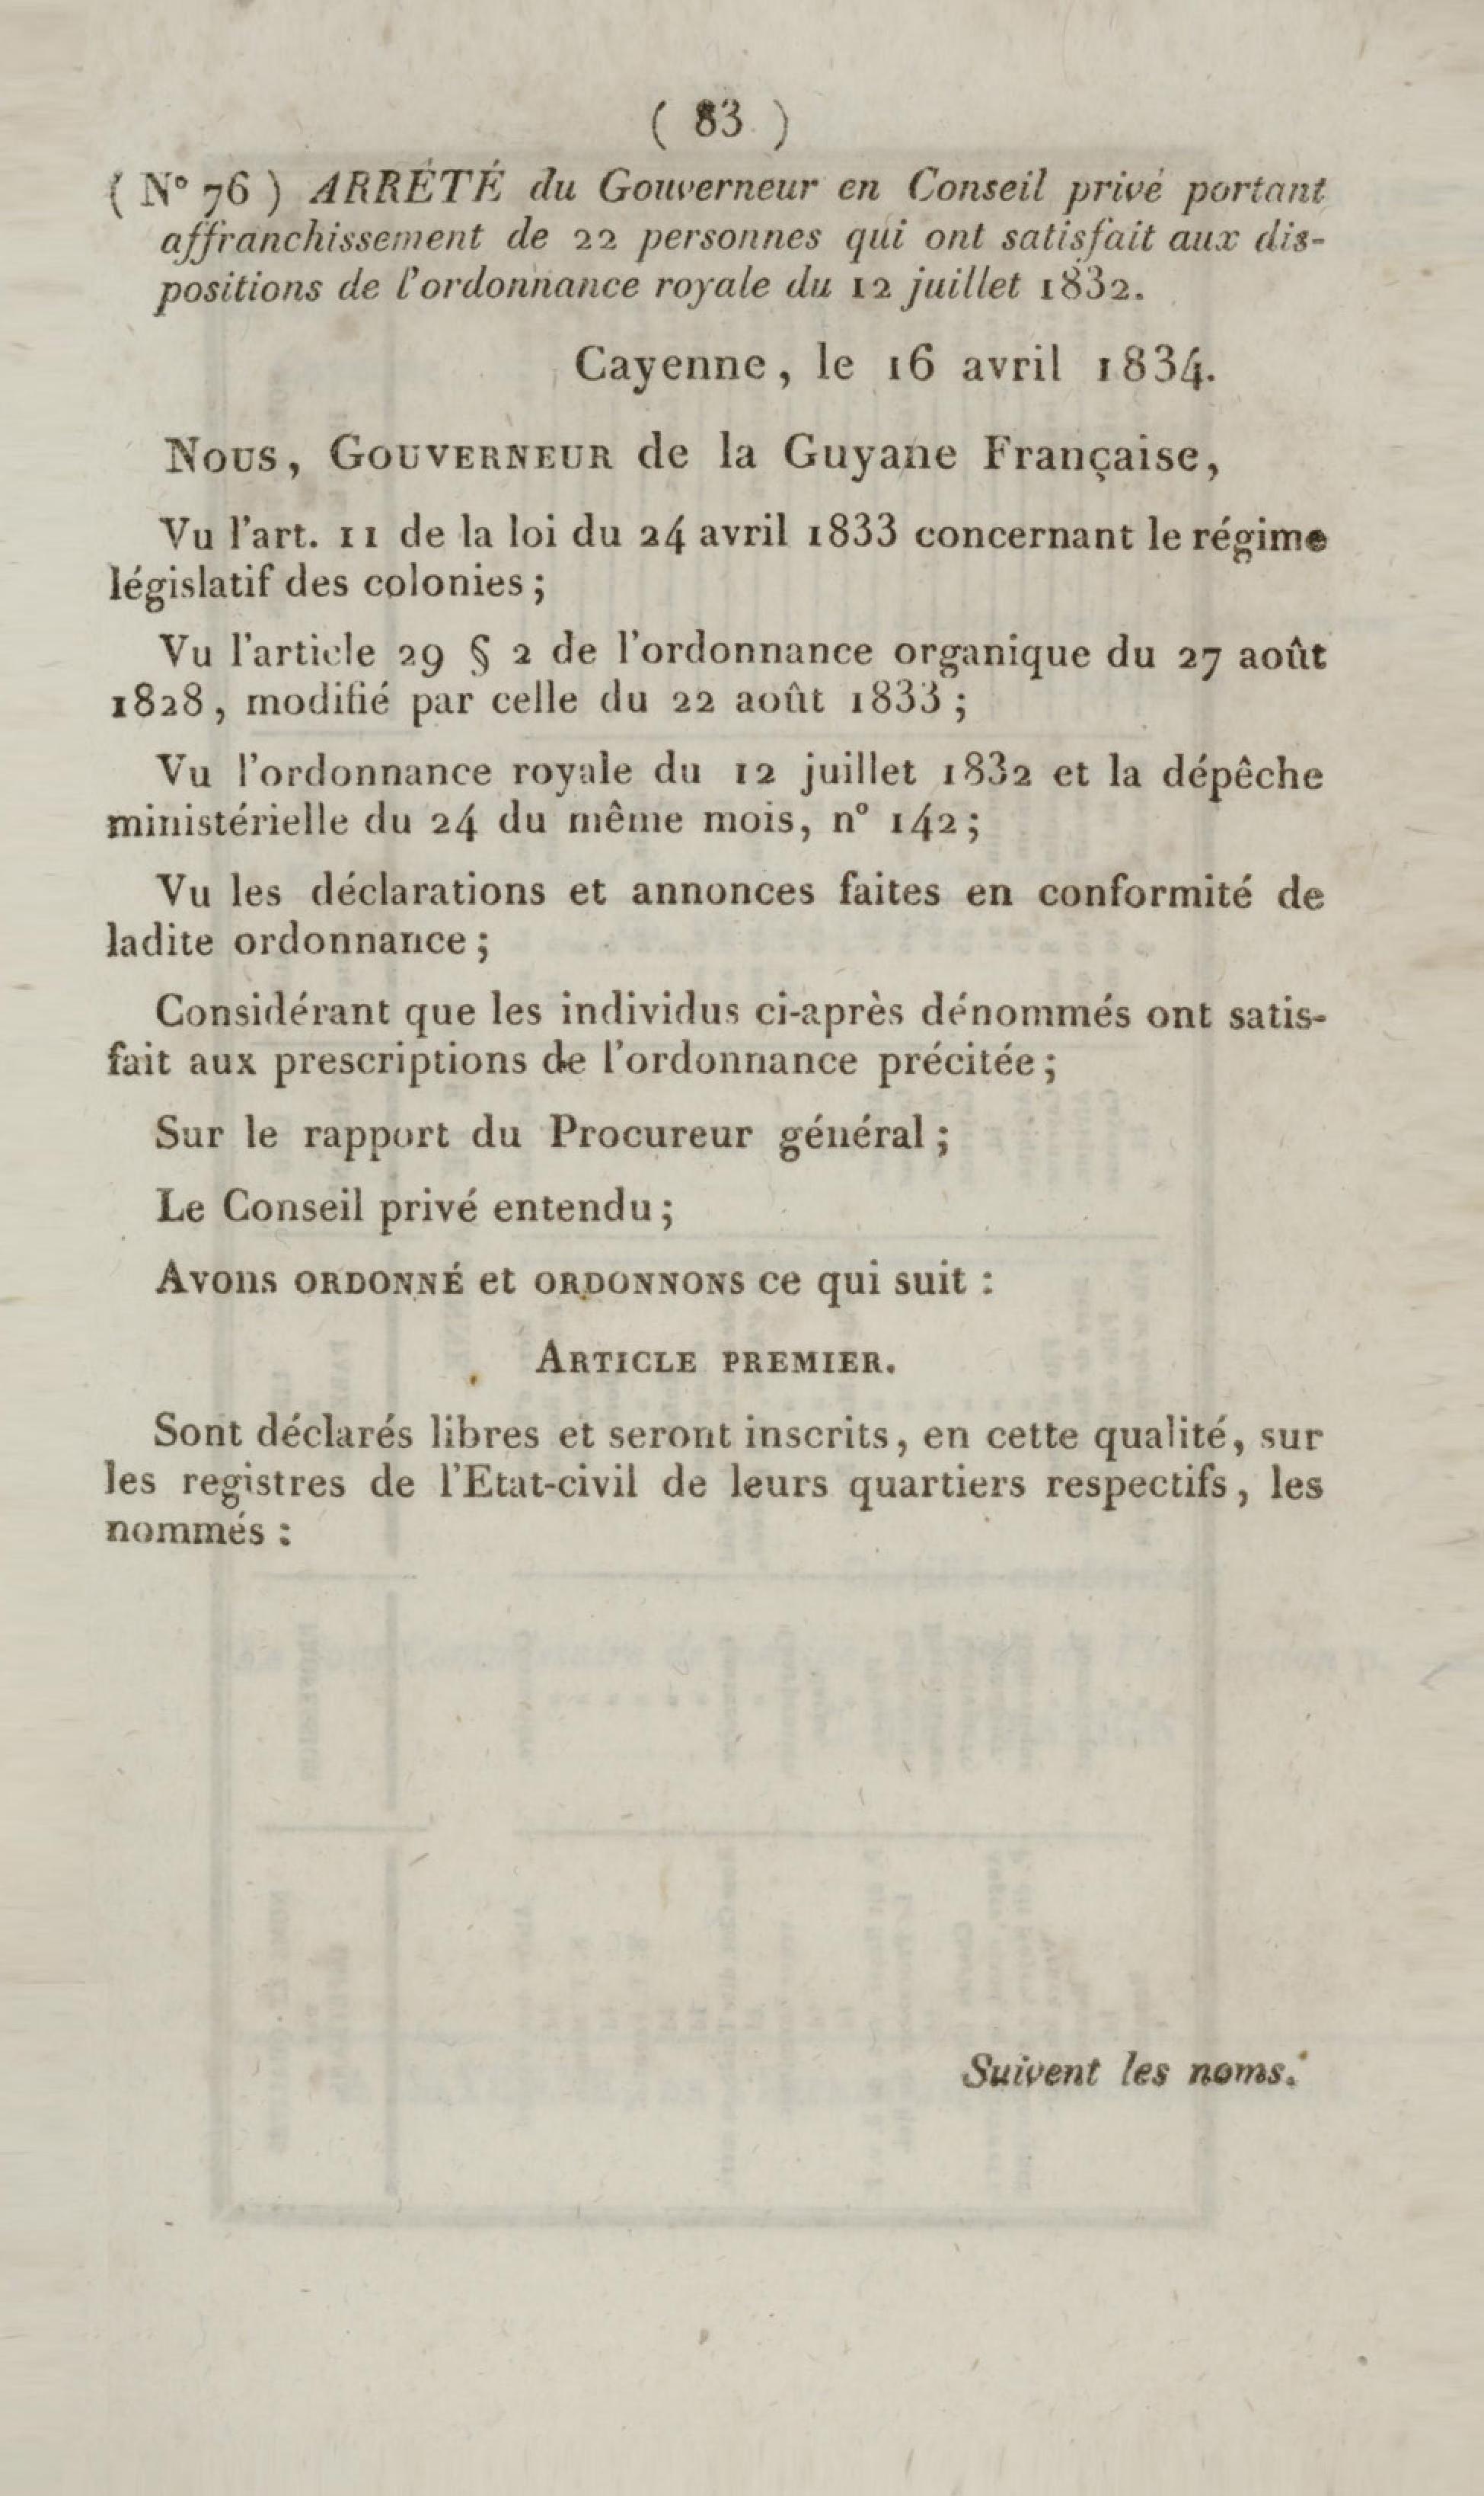 ( 83 )
( N° 76 ) ARRÊTÉ du Gouverneur en Conseil privé portant
affranchissement de 22 personnes qui ont satisfait aux dis-
positions de l'ordonnance royale du 12 juillet 1832.
Cayenne, le 16 avril 1834.
Nous, GOUVERNEUR de la Guyane Française,
Vu l'art. 11 de la loi du 24 avril 1833 concernant le régime
législatif des colonies ;
Vu l'article 29 § 2 de l'ordonnance organique du 27 août
1828, modifié par celle du 22 août 1833 ;
Vu l'ordonnance royale du 12 juillet 1832 et la dépêche
ministérielle du 24 du même mois, n° 142 ;
Vu les déclarations et annonces faites en conformité de
ladite ordonnance ;
Considérant que les individus ci-après dénommés ont satis-
fait aux prescriptions de l'ordonnance précitée ;
Sur le rapport du Procureur général ;
Le Conseil privé entendu ;
Avons ORDONNÉ et ORDONNONS ce qui suit :
ARTICLE PREMIER.
Sont déclarés libres et seront inscrits, en cette qualité, sur
les registres de l'Etat-civil de leurs quartiers respectifs, les
nommés :
Suivent les noms.